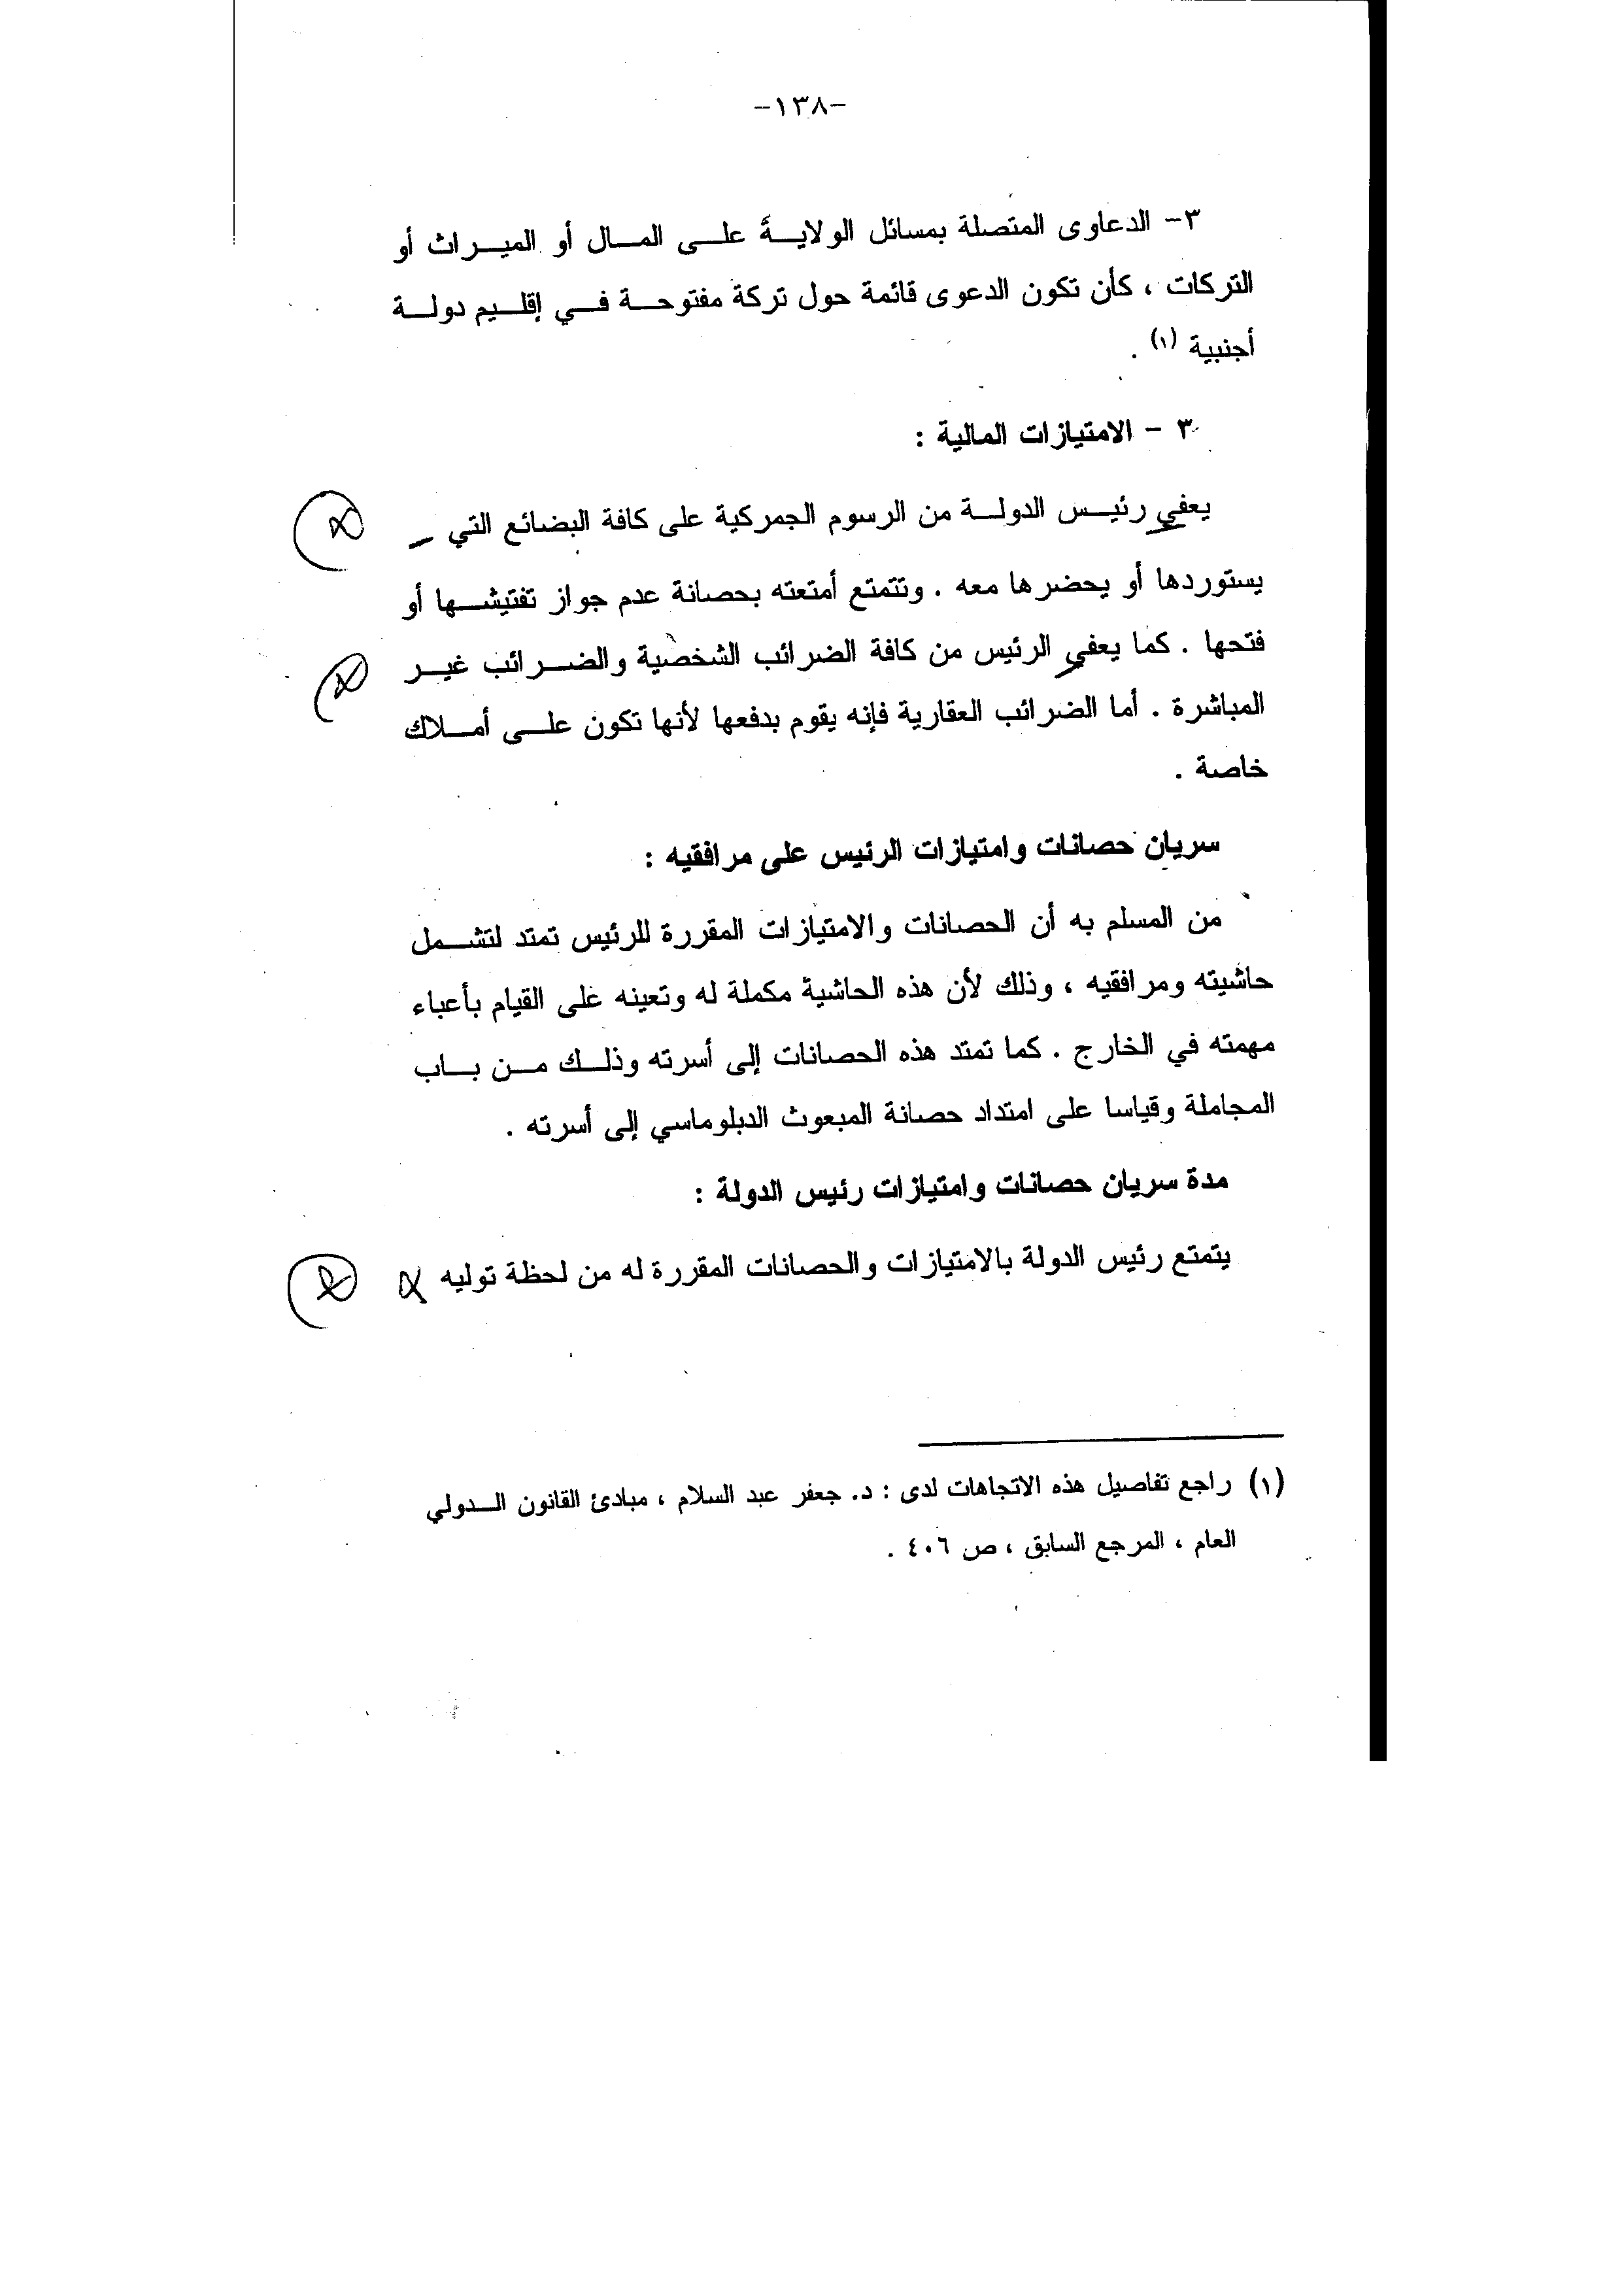 -١٣٨-
٣- الدعاوى المتصلة بمسائل الولاية على المال أو الميراث أو
التركات ، كأن تكون الدعوى قائمة حول تركة مفتوحة في إقليم دولة
أجنبية (١) .
٣ - الامتيازات المالية :
يعفي رئيس الدولة من الرسوم الجمركية على كافة البضائع التي
يستوردها أو يحضرها معه . وتتمتع أمتعته بحصانة عدم جواز تفتيشها أو
فتحها . كما يعفي الرئيس من كافة الضرائب الشخصية والضرائب غير
المباشرة . أما الضرائب العقارية فإنه يقوم بدفعها لأنها تكون على أملاك
خاصة .
سريان حصانات وامتيازات الرئيس على مرافقيه :
من المسلم به أن الحصانات والامتيازات المقررة للرئيس تمتد لتشمل
حاشيته ومرافقيه ، وذلك لأن هذه الحاشية مكملة له وتعينه على القيام بأعباء
مهمته في الخارج . كما تمتد هذه الحصانات إلى أسرته وذلك من باب
المجاملة وقياسا على امتداد حصانة المبعوث الدبلوماسي إلى أسرته .
مدة سريان حصانات وامتيازات رئيس الدولة :
يتمتع رئيس الدولة بالامتيازات والحصانات المقررة له من لحظة توليه
(١) راجع تفاصيل هذه الاتجاهات لدى : د. جعفر عبد السلام ، مبادئ القانون الدولي
العام ، المرجع السابق ، ص ٤٠٦ .